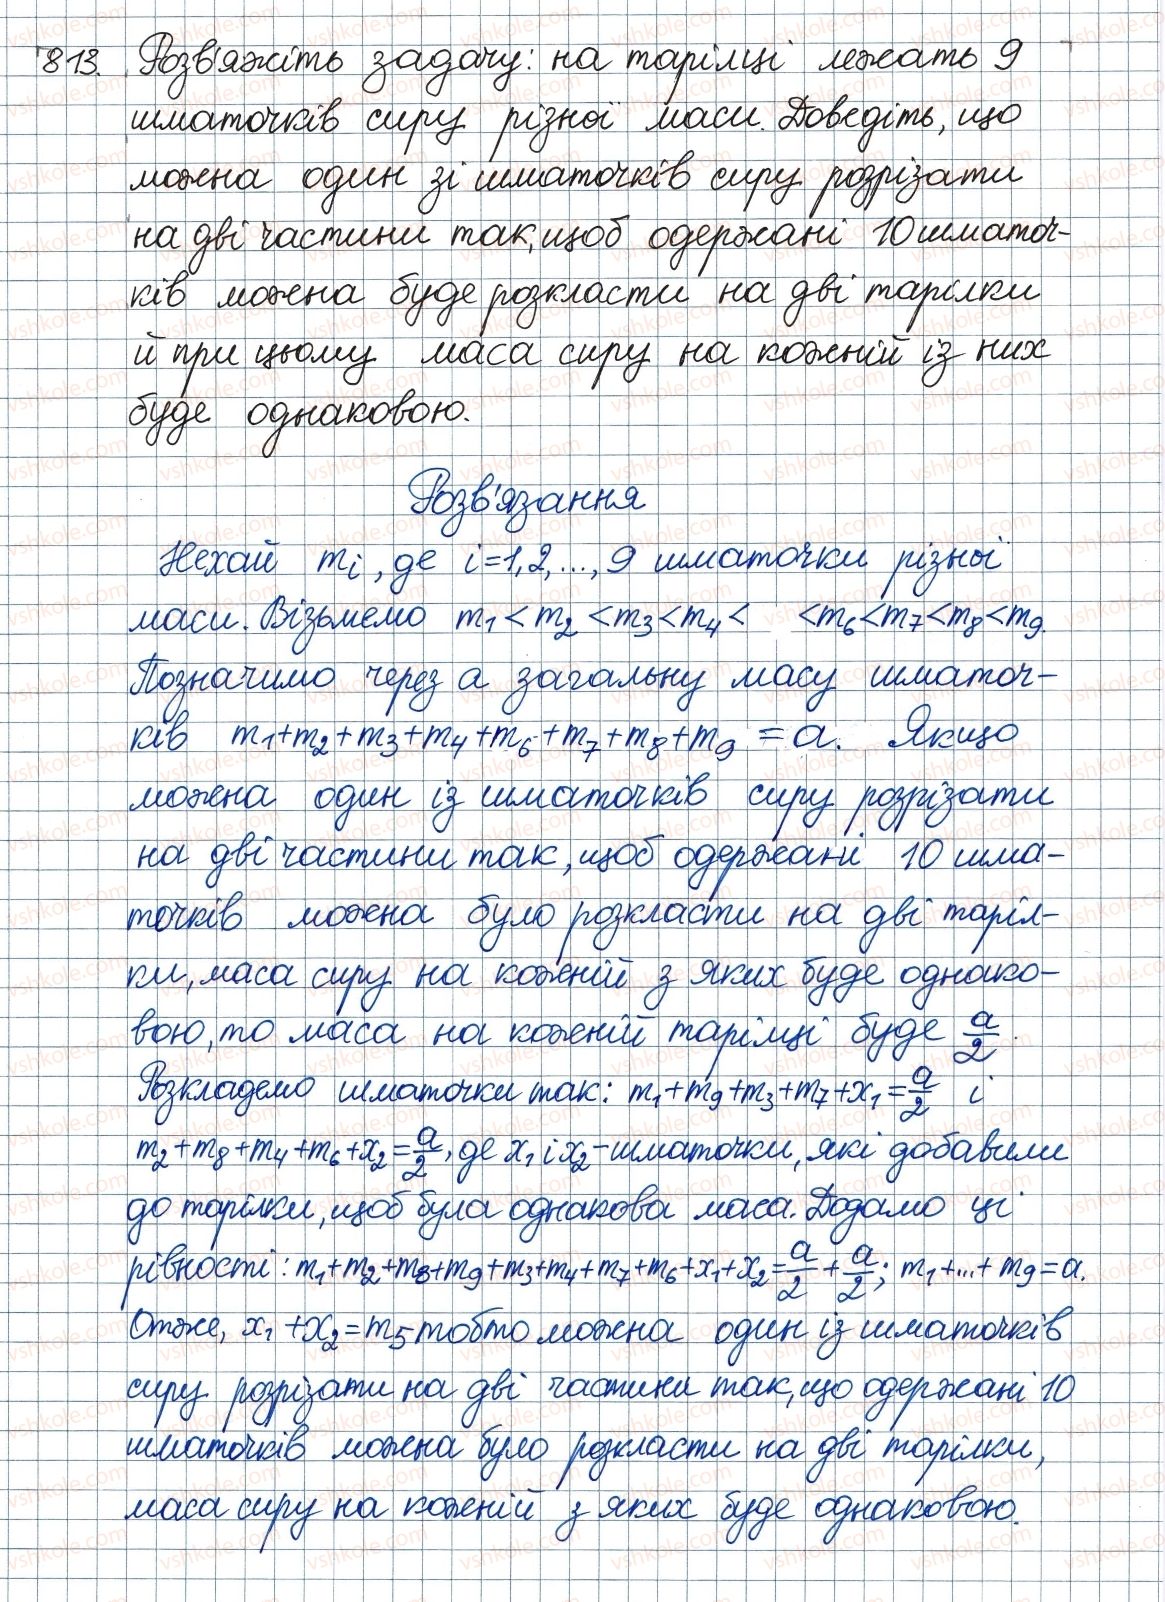 813. Розв'яжіть задачу: на тарілці лежать 9
шматочків сиру різної маси. Доведіть, що
можна один зі шматочків сиру розрізати
на дві частини так, щоб одержані 10 шматоч-
ків можна буде розкласти на дві тарілки
й при цьому маса сиру на кожній із них
буде однаковою.
Розв'язання
Нехай m₁, де i=1,2,...,9 шматочки різної
маси. Візьмемо m₁<m₂<m₃<m₄< <m₆<m₇<m₈<m₉.
Позначимо через a загальну масу шматоч-
ків m₁+m₂+m₃+m₄+m₆+m₇+m₈+m₉=a. Якщо
можна один із шматочків сиру розрізати
на дві частини так, щоб одержані 10 шма-
точків можна було розкласти на дві таріл-
ки, маса сиру на кожній з яких буде однако-
вою, то маса на кожній тарілці буде a/2.
Розкладемо шматочки так: m₁+m₉+m₃+m₇+x₁=a/2 і
m₂+m₈+m₄+m₆+x₂=a/2, де x₁ і x₂ – шматочки, які добавили
до тарілки, щоб була однакова маса. Додамо ці
рівності: m₁+m₂+m₈+m₉+m₃+m₄+m₇+m₆+x₁+x₂=a/2+a/2; m₁+...+m₉=a.
Отже, x₁+x₂=m₅ тобто можна один із шматочків
сиру розрізати на дві частини так, що одержані 10
шматочків можна було розкласти на дві тарілки,
маса сиру на кожній з яких буде однаковою.